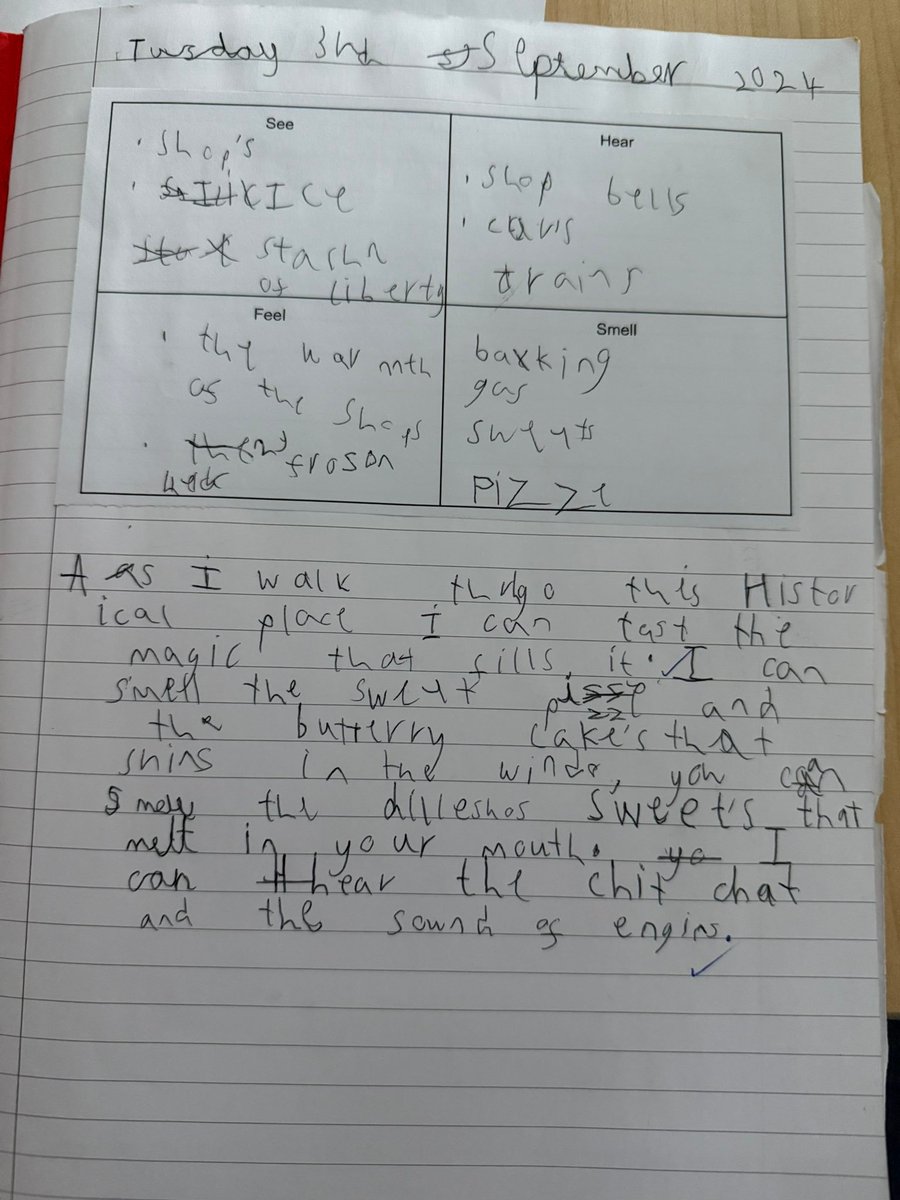 Tusday 3rd September 2024
See
• Shop's
• ICe
stashn
of liberty
Hear
• Shop bells
• cars
trains
Feel
• the warmth
as the shops
• froson
Smell
baking
gas
sweyts
PiZZe
A as I walk thrgo this Histor
ical place I can tast the
magic that fills it. I can
smell the sweyt pizze and
the butterry cake's that
shins in the windo, you can
smell the dilleshos sweet's that
melt in your mouth. I
can hear the chit chat
and the sound of engins.